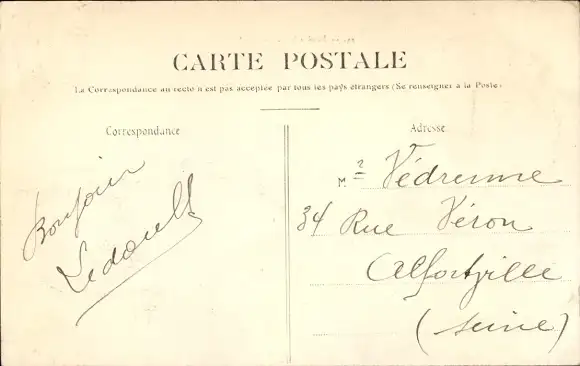 CARTE POSTALE
La Correspondance au recto n'est pas acceptée par tous les pays étrangers (Se renseigner à la Poste)
Correspondance
Bonjour
Adresse
M.r Védrenne
34 Rue Véron
Alfortville
(Seine)